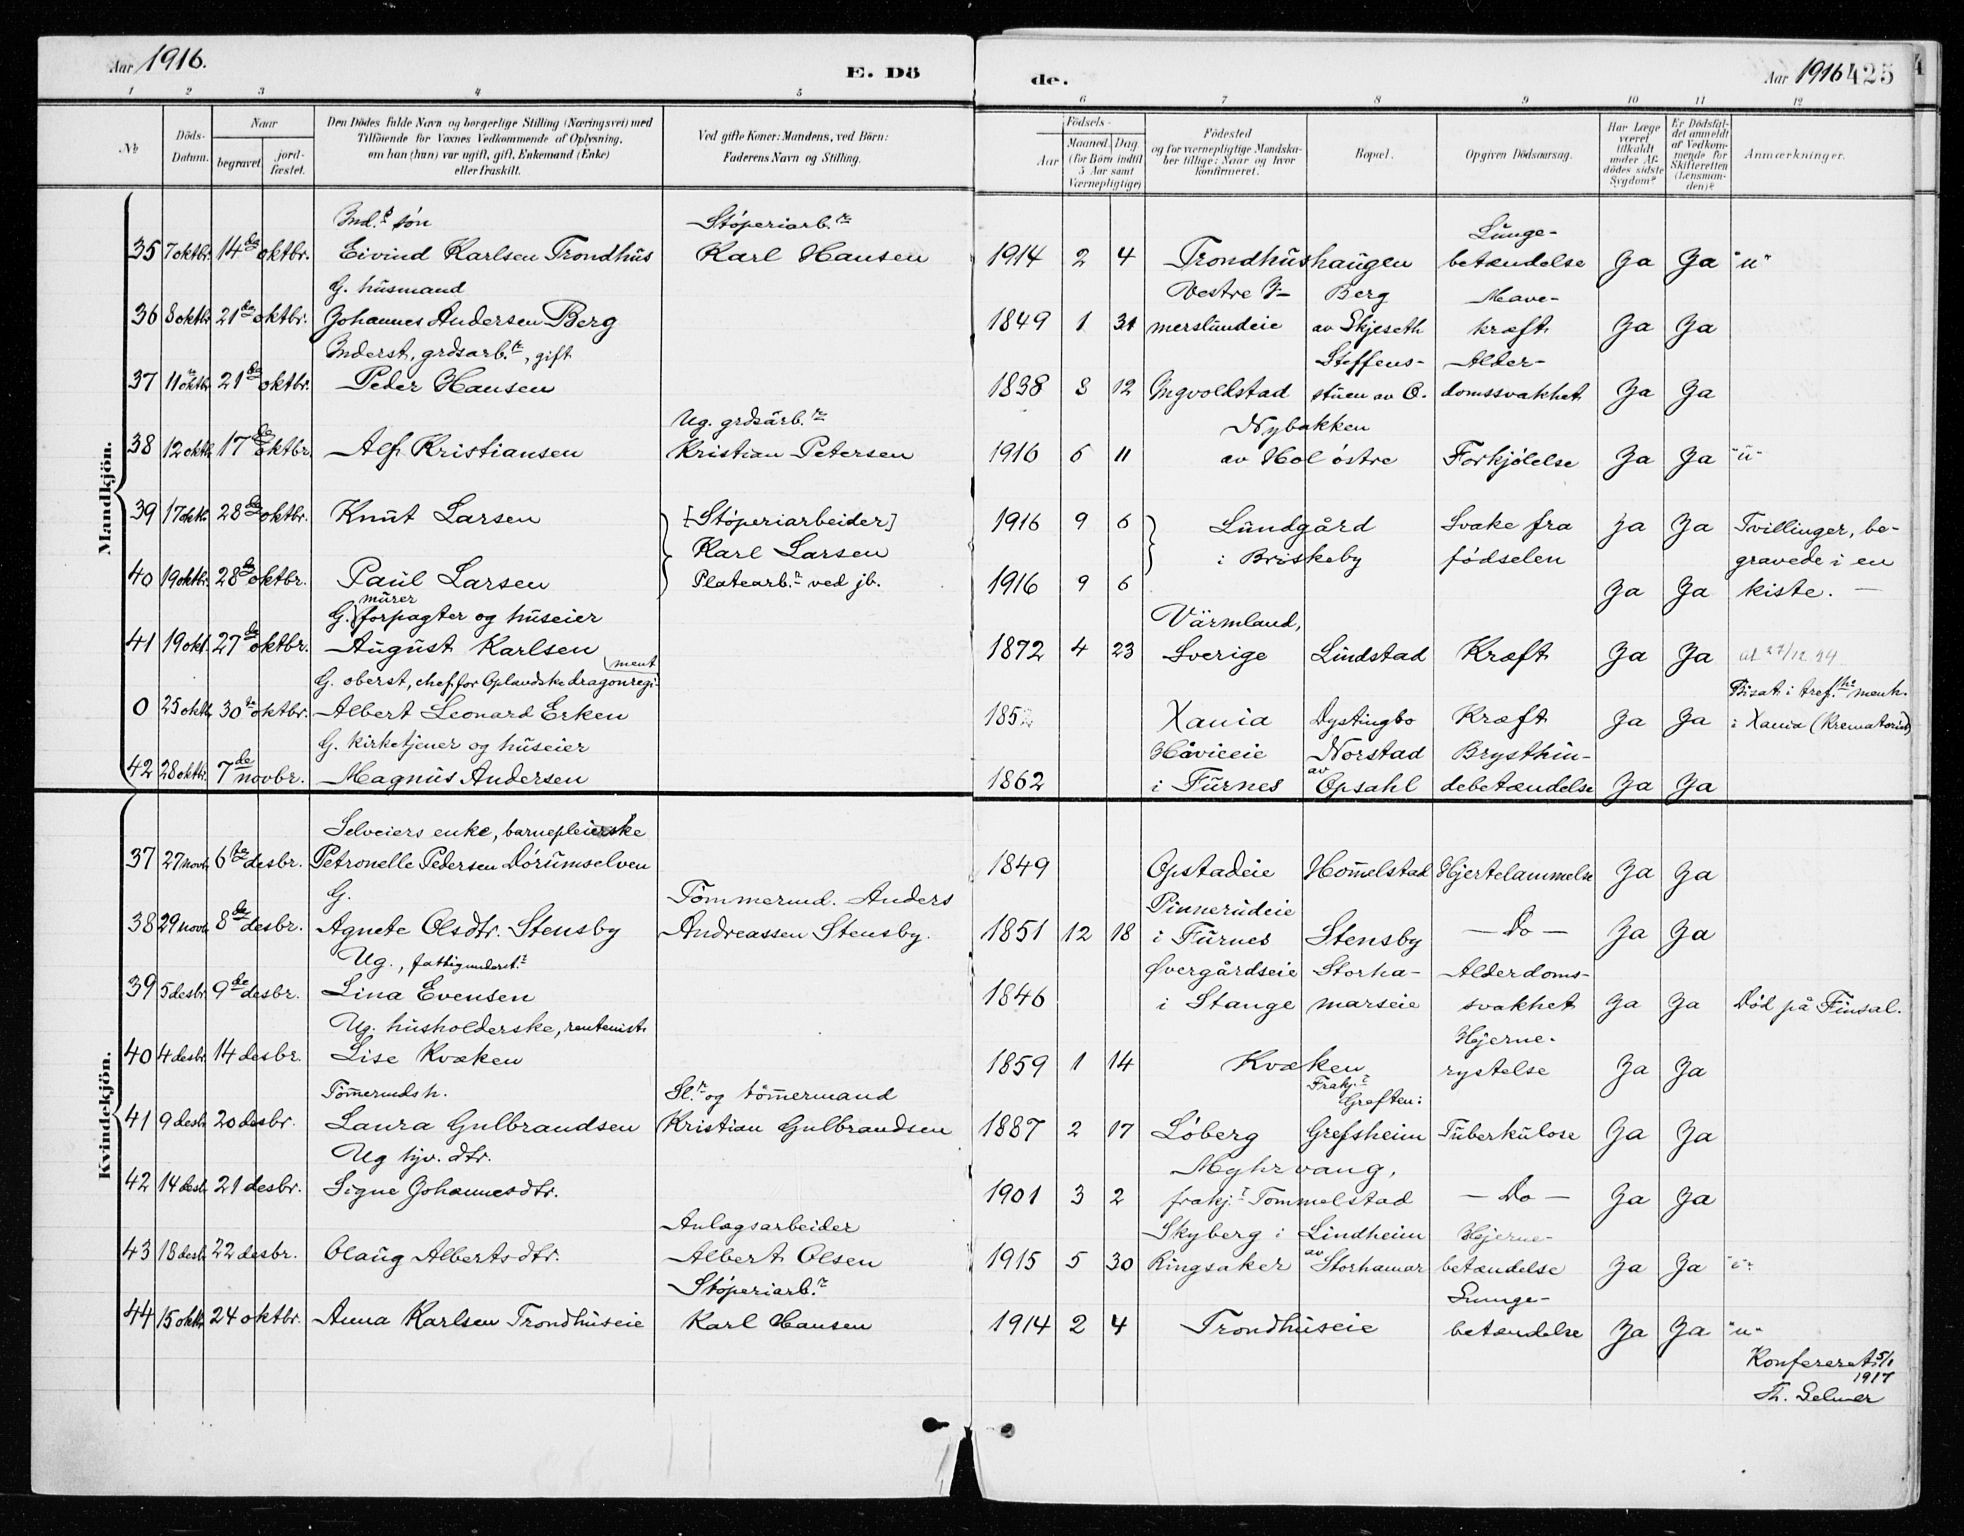 Aar 1916.
E. Dö
de.
Aar 1916 425
1 2 3 4 5 6 7 8 9 10 11 12
№
Döds-Datum.
Naar
begravet.
jord-fæstet.
Den Dödes fulde Navn og borgerlige Stilling (Næringsvei) med
Tilföiende for Voxnes Vedkommende af Oplysning,
om han (hun) var ugift, gift, Enkemand (Enke)
eller fraskilt.
Ved gifte Koner: Mandens, ved Börn:
Faderens Navn og Stilling.
Födsels-
Aar
Maaned. Dag
(for Börn indtil
5 Aar samt
Værnepligtige)
Födested
og for værnepligtige Mandska-
ber tillige: Naar og hvor
konfirmeret.
Bopæl.
Opgiven Dödsaarsag.
Har Læge
været
tilkaldt
under Af-
dödes sidste
Sygdom?
Er Dödsfal-
det anmeldt
af Vedkom-
mende for
Skifteretten
(Lensman-
den)?
Anmærkninger.
Mandkjön.
Ind. søn Støperiarb. Lunge-
35 7 oktbr. 14de oktbr. Eivind Karlsen Trondhus Karl Hansen 1914 2 4 Trondhushaugen betændelse Ja Ja "u"
G. husmand Vestre I- Berg Mave-
36 8 oktbr. 21de oktbr. Johannes Andersen Berg 1849 1 31 merslundeie av Skjeseth kræft Ja Ja
Inderst, grdsarb., gift Steffens- Alder-
37 11 oktbr. 21de oktbr. Peder Hansen 1838 8 12 Ingvoldstad stuen av O. domssvakhet Ja Ja
Ug. grdsarb. Nybakken
38 12 oktb. 17de oktbr. Alf Kristiansen Kristian Petersen 1916 6 11 av Hol østre Forkjølelse Ja Ja "u"
39 17 oktb. 28de oktbr. Knut Larsen [Støperiarbeider] 1916 9 6 Lundgård Svake fra Ja Ja Tvillinger, be-
Karl Larsen i Briskeby fødselen gravede i en
40 19 oktbr. 28de oktbr. Paul Larsen Platearb. ved jb. 1916 9 6 Ja Ja kiste. —
murer
G. forpagter og huseier Värmland,
41 19 okt. 27de oktbr. August Karlsen 1872 4 23 Sverige Lindstad Kræft Ja Ja
ment
G. oberst, chef for Oplandske dragonregi- Bisat i tref. menh.
0 25 oktb. 30te oktbr. Albert Leonard Erken 185 Xania Dystingbo Kræft Ja Ja i Xania (Krematoriet)
G. kirketjener og huseier Håvieeie Norstad Brysthin-
42 28 oktbr. 7de novbr. Magnus Andersen 1862 i Furnes av Opsahl debetændelse Ja Ja
Kvindekjön.
Selveiers enke, barnepleierske
37 27 novb. 6te desbr. Petronelle Pedersen Dørumselven 1849 Opstadeie Hommelstad Hjertelammelse Ja Ja
G. Tømmermd. Anders Pinnerudeie
38 29 novb. 8de desbr. Agnete Olsdtr. Stensby Andreassen Stensby. 1851 12 18 i Furnes Stensby — Do — Ja Ja
Ug., fattigunderst. Øvergårdseie Storha- Alderdoms-
39 5 desbr. 9de desbr. Lina Evensen 1846 i Stange marseie svakhet Ja Ja Død på Finsal.
Ug. husholderske, rentenist. Hjerne-
40 4 desbr. 14 desbr. Lise Kvæken 1859 1 14 Kvæken rystelse Ja Ja
Tømmermdsh. Sl. og tømmermand Frakj. Greften:
41 9 desb. 20 desbr. Laura Gulbrandsen Kristian Gulbrandsen 1887 2 17 Løberg Grefsheim Tuberkulose Ja Ja
Ug hjv. dtr. Myhrvang,
42 14 desb. 21 desbr. Signe Johannesdtr. 1901 3 2 frakj. Tommelstad — Do — Ja Ja
Anlægsarbeider Skyberg i Lindheim Hjerne-
43 18 desb. 22 desbr. Olaug Albertsdtr. Albert Olsen 1915 5 30 Ringsaker av Storhamar betændelse Ja Ja
Støperiarb. Lunge-
44 15 oktbr. 24 oktbr. Anna Karlsen Trondhuseie Karl Hansen 1914 2 4 Trondhuseie betændelse Ja Ja "u"
Konfereret 5/1
1917
Th. Gelmer